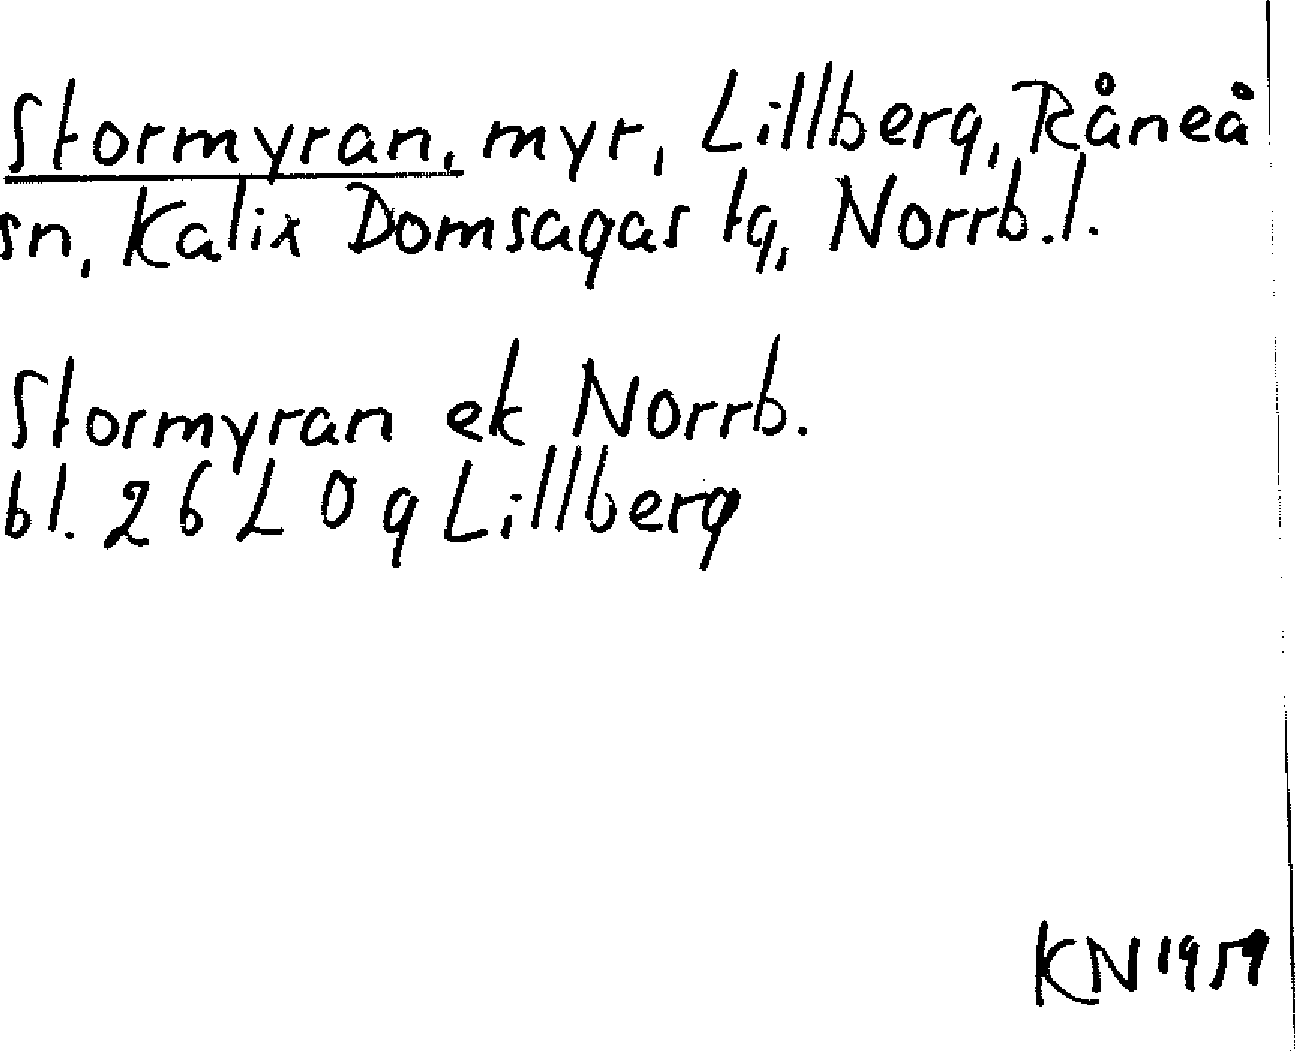 Stormyran, myr, Lillberg, Råneå
sn, Kalix Domsagas tg, Norrb.l.
Stormyran ek Norrb.
bl. 26 L 0 g Lillberg
KN 1959